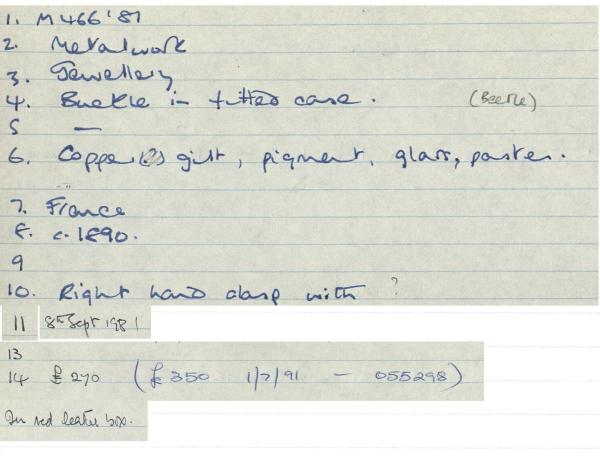 1. M 466 '81
2. Metalwork
3. Jewellery
4. Buckle in fitted case. (Beetle)
5 —
6. Copper(?) gilt, pigment, glass, pastes.
7. France
8. c.1890.
9
10. Right hand clasp with ?
11 8th Sept 1981
13
14 £270 (£350 1/7/91 - 055298)
In red leather box.